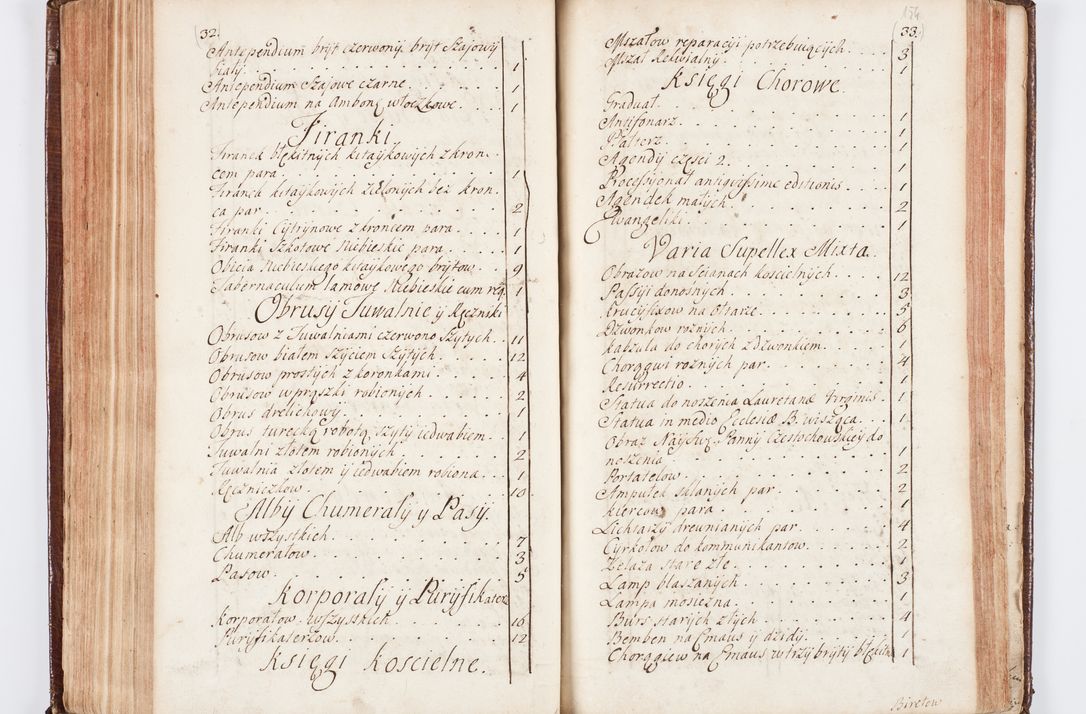 32.
Antependium bryt czerwony, bryt Szajowy
biały. 1
Antependium Szajowe czarne. 1
Antependium na Ambonę włoczkowe. 1
Firanki.
Firanek błękitnych kitaykowych z kron-
cem para. 1
Firanek kitaykowych zielonych bez kron-
ca par. 2
Firanki Cytrynowe z kroniem para. 1
Firanki Szkotowe Niebieskie para. 1
Obicia Niebieskiego kitaykowego brytow. 9
Tabernaculum lamowe Niebieskie cum req. 1
Obrusy Tuwalnie y Ręczniki
Obrusow z Tuwalniami czerwono szytych. 11
Obrusow białem szyciem szytych. 12
Obrusow prostych z koronkami. 4
Obrusow w prąszki robionych. 2
Obrus drelichowy. 1
Obrus turecką robotą szyty iedwabiem. 1
Tuwalni złotem robionych. 2
Tuwalnia złotem y iedwabiem robiona. 1
Ręczniczkow. 10
Alby Chumerały y Pasy.
Alb wszystkich. 7
Chumerałow. 3
Pasow. 5
Korporały y Puryfikaterz
Korporałow wszystkich. 16
Puryfikaterzow. 12
Księgi koscielne.
154
33.
Mszałow reparacyi potrzebuiących. 3
Mszał Rekwialny. 1
Księgi Chorowe.
Graduał. 1
Antifonarz. 1
Psałterz. 1
Agendy części 2. 1
Processyonał antiquissime editionis. 1
Agendek małych. 2
Ewangeliki. 1
Varia Supellex Mixta.
Obrazow na Scianach koscielnych. 12
Passyi donosnych. 3
Krucyfixow na Ołtarze. 5
Dzwonkow roznych. 6
Kaszula do chorych z Dzwonkiem. 1
Chorągwi roznych par. 4
Resurrectio. 1
Statua do noszenia Lauretanæ Virginis. 1
Statua in medio Ecclesiæ B. wisząca. 1
Obraz Nayśw. Panny Częstochowskiey do
noszenia. 1
Portatelow. 2
Ampułek sklanych par. 2
Kiercow para. 1
Lichtarzy drewnianych par. 4
Cyrkołow do kommunikantow. 2
Zelaza stare złe. 1
Lamp blaszanych. 3
Lampa mosiezna. 1
Burs starych złych. 4
Bemben na Emaus y dzidy. 1
Chorągiew na Emaus w trzy bryty błękitn. 1
Biretow